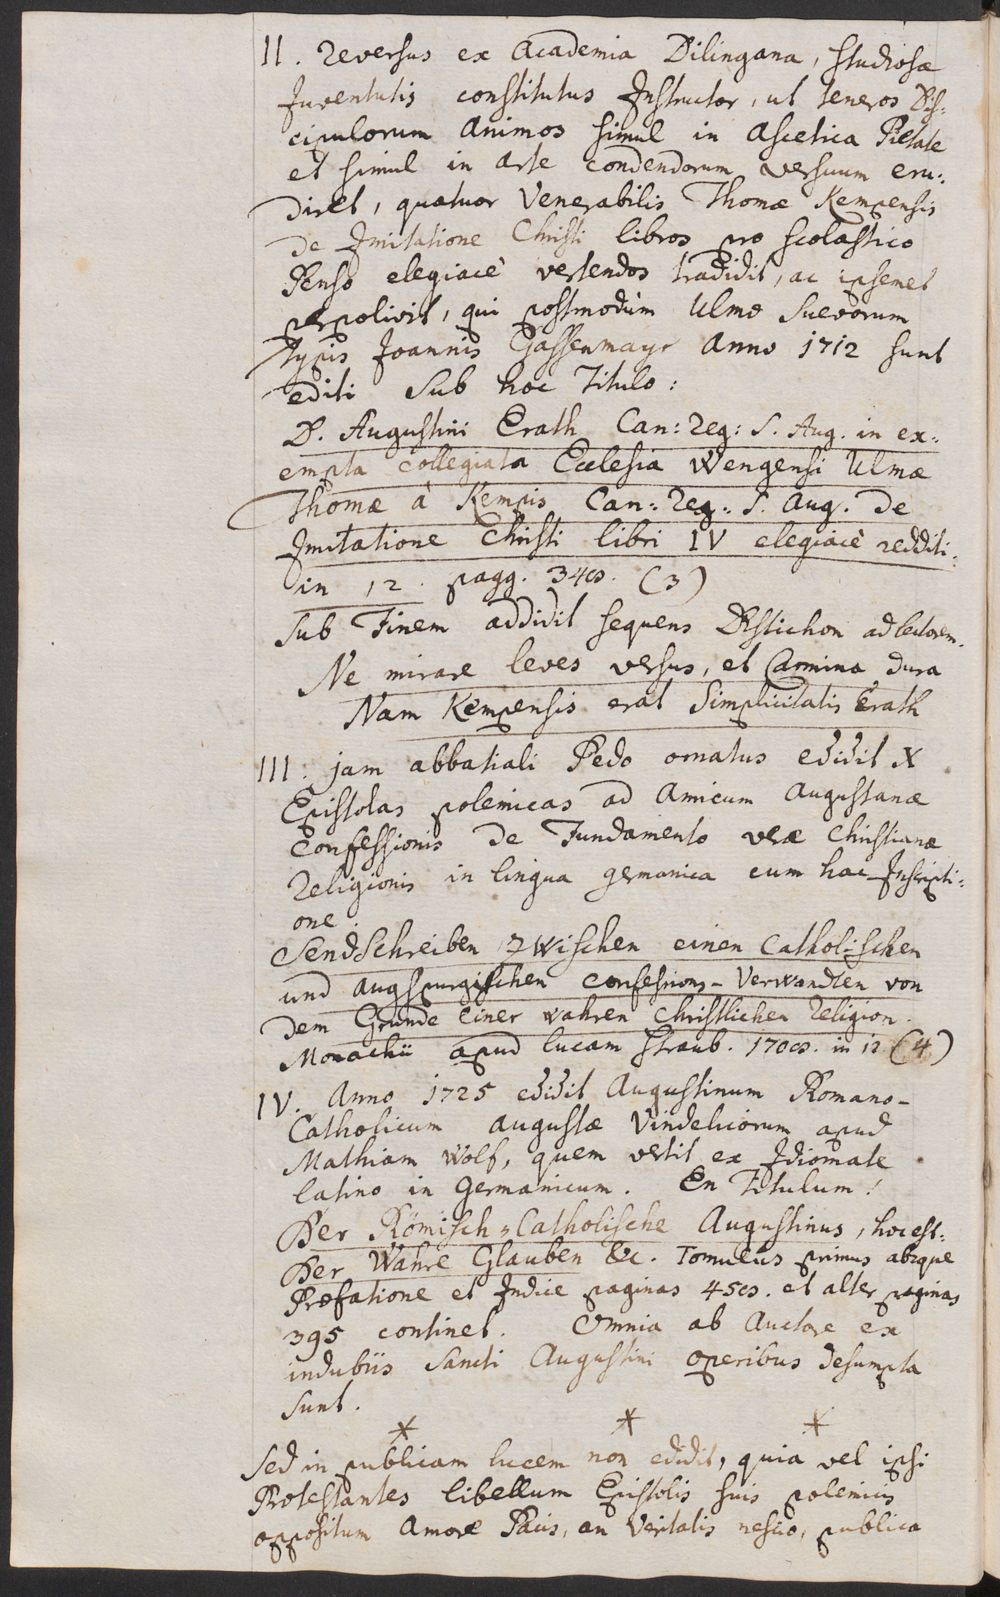 II. Reversus ex Academia Dilingana, studiosæ
Juventutis constitutus Instructor, ut teneros Dis-
cipulorum Animos simul in Ascetica Pietate
et simul in Arte condendorum versuum eru-
diret, quatuor Venerabilis Thomæ Kempensis
de Imitatione Christi libros pro scolastico
Penso elegiacè vertendos tradidit, ac ipsemet
perpolivit, qui postmodùm Ulmo Suevorum
Typis Joannis Gassenmayr Anno 1712 sunt
editi Sub hoc Titulo:
D. Augustini Erath Can: Reg: S. Aug. in ex-
empta collegiata Ecclesia Wengensi Ulmæ
Thomæ à Kempis Can: Reg: S. Aug. De
Imitatione Christi libri IV elegiacè redditi.
in 12. pagg. (3)
Sub Finem addidit sequens Distichon ad lectorem.
Ne mirare leves versus, et Carmina dura
Nam Kempensis erat Simplicitatis Erath
III. jam abbatiali Pedo ornatus edidit X
Epistolas polemicas ad Amicum Augustanæ
Confessionis de Fundamento veræ Christianæ
Religionis in lingua germanica cum hac Inscripti-
one.
SendSchreiben zwischen einen Catholischen
und augspurgischen confessions-Verwandten von
dem Grunde einer wahren christlichen Religion.
Monachii apud lucam Straub. in 12 (4)
IV. Anno 1725 edidit Augustinum Romano-
Catholicum augustæ Vindelicorum apud
Mathiam Wolf, quem vertit ex Idiomate
latino in Germanicum. En Titulum!
Der Römisch-Catholische Augustinus, hoc est:
Der Wahre Glauben &c. Tomulus primus absque
Præfatione et Indice paginas et alter paginas
395 continet. Omnia ab Auctore ex
indubiis Sancti Augustini operibus desumpta
sunt.
* * *
Sed in publicam lucem non edidit, quia vel ipsi
Protestantes libellum Epistolis suis polemicis
oppositum Amore Pacis, an Veritatis nescio, publica